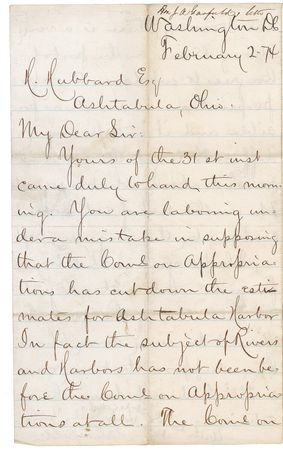 Hon J. A. Garfield's letter
Washington DC
February 2-74
H. Hubbard Esq
Ashtabula, Ohio.
My Dear Sir:
Yours of the 31st inst
came duly to hand this morn
ing. You are laboring un
der a mistake in supposing
that the Come on Appropria
tions has cut down the esti
mates for Ashtabula Harbor
In fact the subject of Rivers
and Harbors has not been be
fore the Come on Appropria
tions at all. The Come on